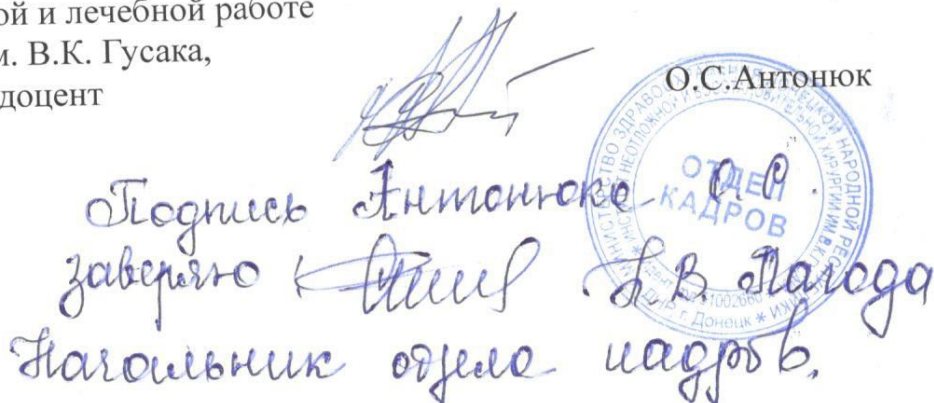 ой и лечебной работе
м. В.К. Гусака,
доцент
О.С.Антонюк
ОТДЕЛ
КАДРОВ
г. Донецк
Подпись Антонюка О.С.
заверяю
Начальник отдела кадров.